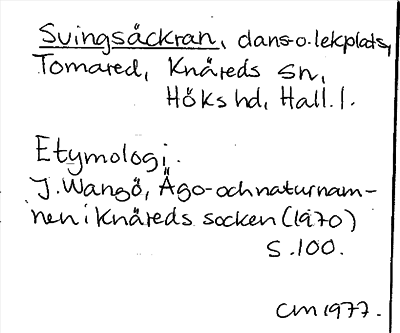 Svingsäckran, dans-o.lekplats,
Tomared, Knäreds sn,
Höks hd, Hall.l.
Etymologi.
J. Wangö, Ägo- och naturnam-
nen i Knäreds socken (1970)
s.100.
CM 1977.